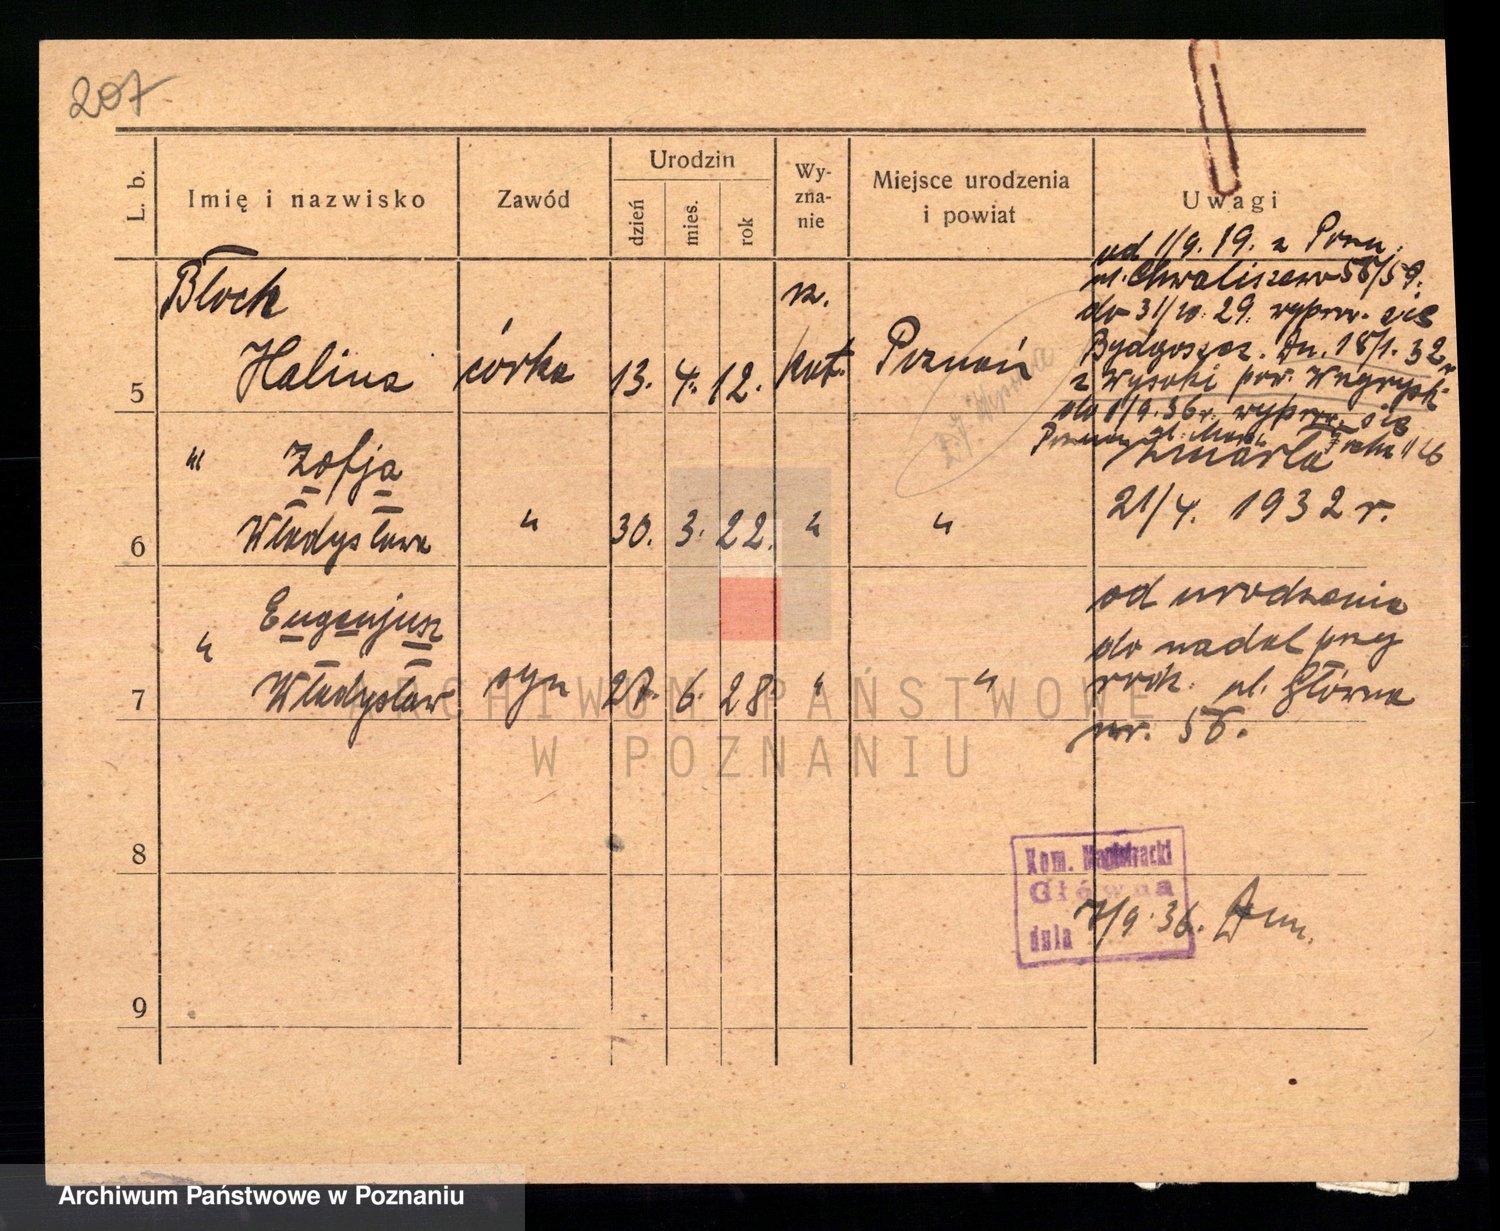 207
L. b.
Imię i nazwisko
Zawód
Urodzin
dzień
mies.
rok
Wy-
zna-
nie
Miejsce urodzenia
i powiat
Uwagi
Błoch
Halina
córka
13. 4. 12.
rz.
kat.
Poznań
od 1/9. 19. z Pozn.
ul. Chwaliszewo 58/59.
do 31/10. 29. wypr. się
Bydgoszcz. Dn. 18/1. 32 r.
z Wysoki pow.
do 1/9. 36 r. wypr. się
Poznań
5
" Zofja
Władysława
" 30. 3. 22. " "
zmarła
21/4. 1932 r.
6
" Eugenjusz
Władysław
syn 27. 6. 28 " "
od urodzenia
do nadal przy
rodz. ul. Główna
nr. 56.
7
8
9
Kom. Magistracki
Główna
dnia 7/9. 36.
ARCHIWUM PAŃSTWOWE
W POZNANIU
Archiwum Państwowe w Poznaniu